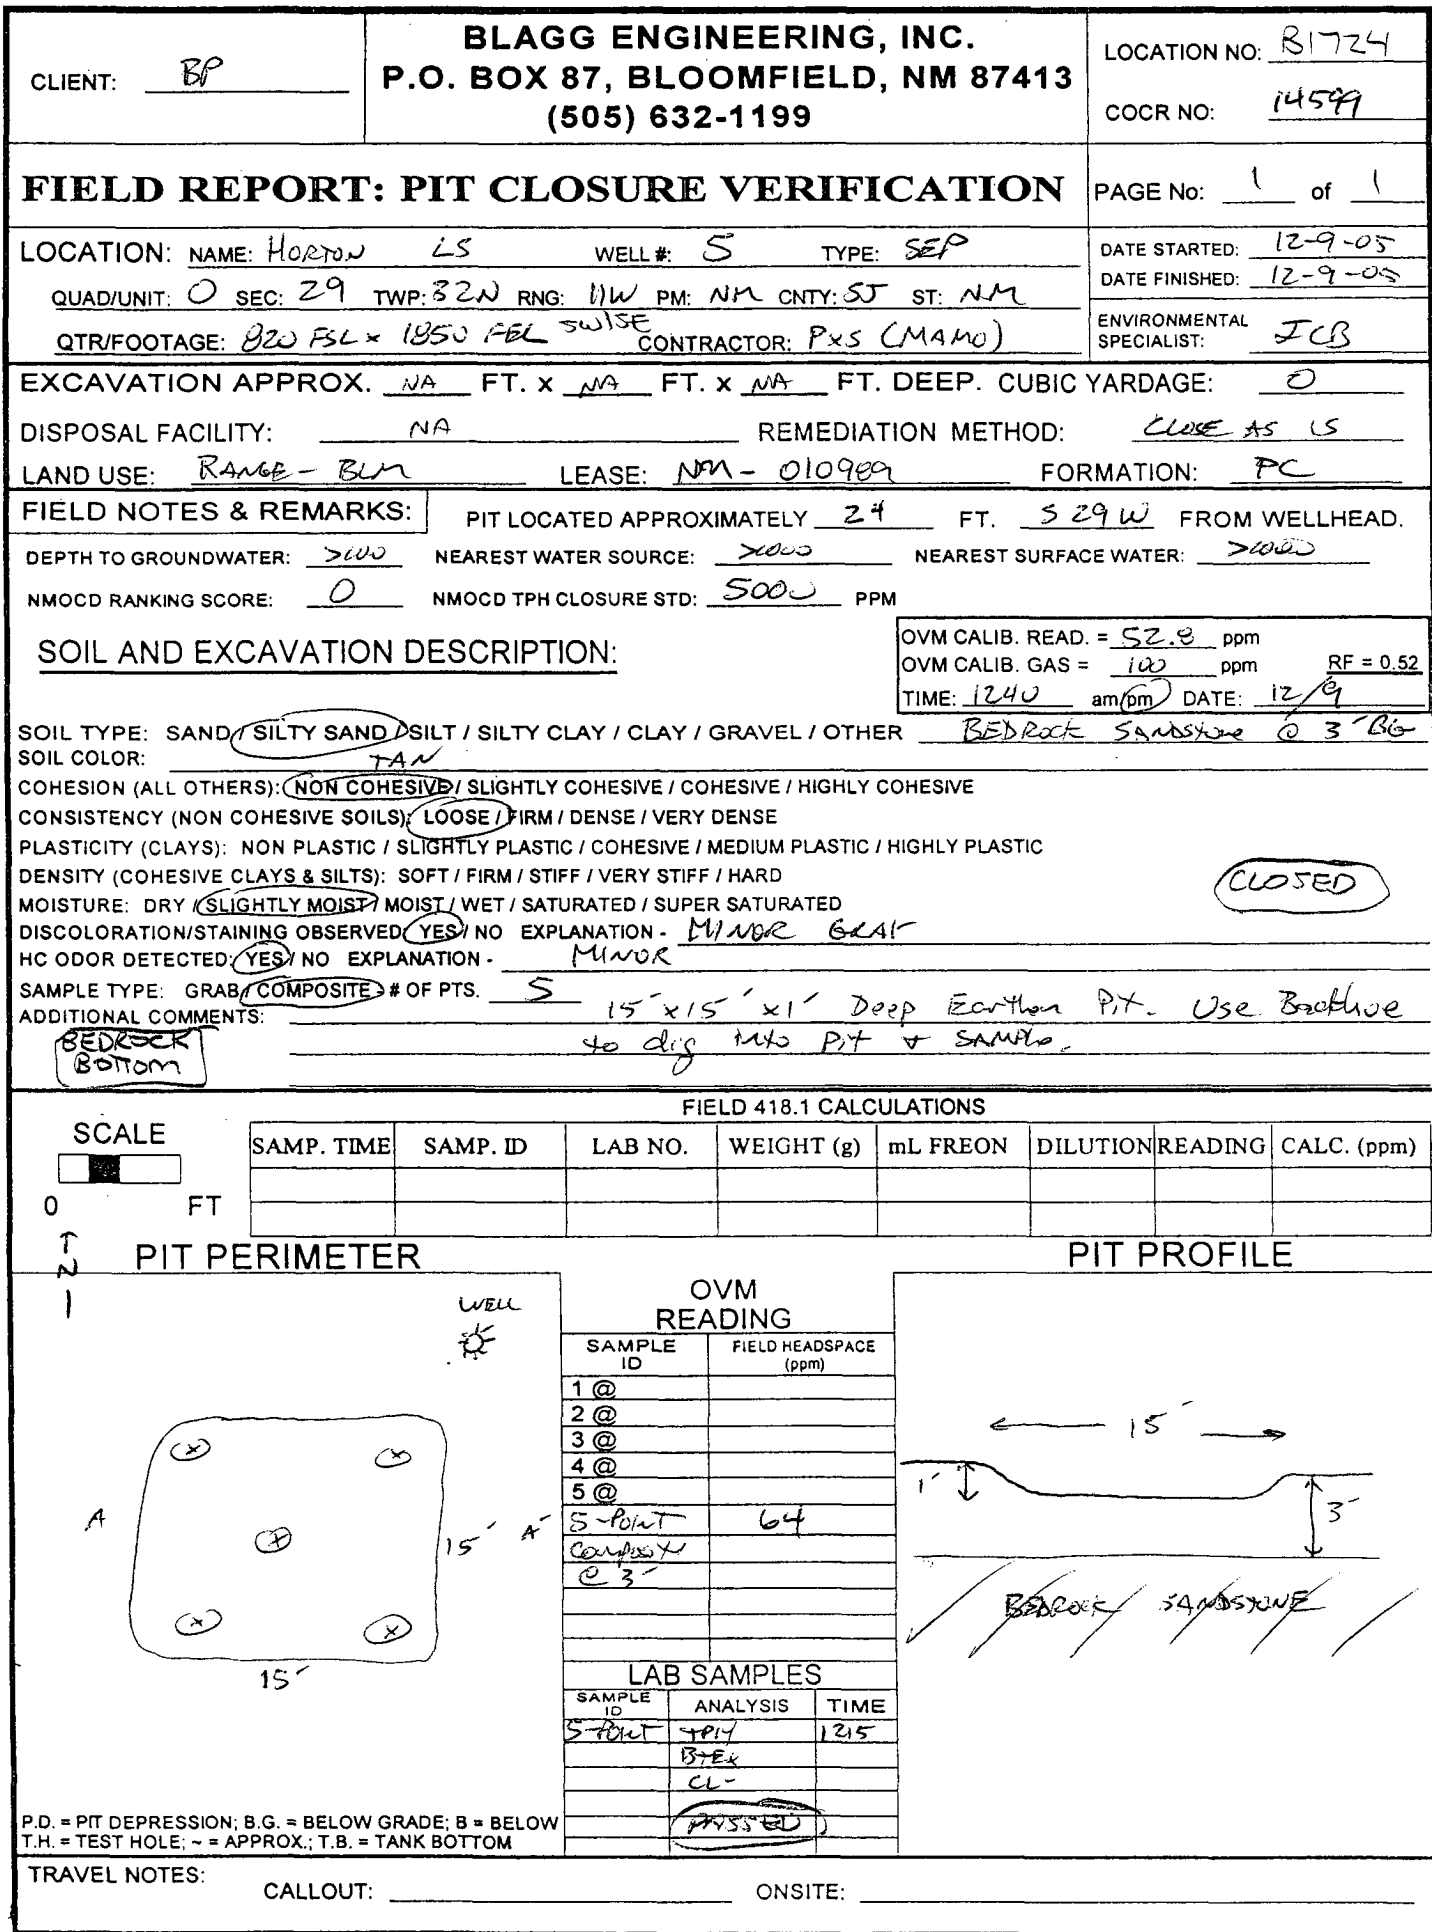 CLIENT: BP
BLAGG ENGINEERING, INC.
P.O. BOX 87, BLOOMFIELD, NM 87413
(505) 632-1199
LOCATION NO: B1724
COCR NO: 14599
FIELD REPORT: PIT CLOSURE VERIFICATION
PAGE No: 1 of 1
LOCATION: NAME: HORTON LS WELL #: 5 TYPE: SEP
DATE STARTED: 12-9-05
DATE FINISHED: 12-9-05
QUAD/UNIT: O SEC: 29 TWP: 32N RNG: 11W PM: NM CNTY: SJ ST: NM
QTR/FOOTAGE: 820 FSL x 1850 FEL SW/SE CONTRACTOR: P&S (MAMO)
ENVIRONMENTAL SPECIALIST: JCB
EXCAVATION APPROX. NA FT. x NA FT. x NA FT. DEEP. CUBIC YARDAGE: 0
DISPOSAL FACILITY: NA REMEDIATION METHOD: CLOSE AS IS
LAND USE: RANGE - BLM LEASE: NM - 010989 FORMATION: PC
FIELD NOTES & REMARKS: PIT LOCATED APPROXIMATELY 24 FT. S 29 W FROM WELLHEAD.
DEPTH TO GROUNDWATER: >100 NEAREST WATER SOURCE: >1000 NEAREST SURFACE WATER: >1000
NMOCD RANKING SCORE: 0 NMOCD TPH CLOSURE STD: 5000 PPM
SOIL AND EXCAVATION DESCRIPTION:
OVM CALIB. READ. = 52.8 ppm
OVM CALIB. GAS = 100 ppm RF = 0.52
TIME: 1240 am/pm DATE: 12/9
SOIL TYPE: SAND / SILTY SAND / SILT / SILTY CLAY / CLAY / GRAVEL / OTHER BEDROCK SANDSTONE @ 3' BG
SOIL COLOR: TAN
COHESION (ALL OTHERS): NON COHESIVE / SLIGHTLY COHESIVE / COHESIVE / HIGHLY COHESIVE
CONSISTENCY (NON COHESIVE SOILS): LOOSE / FIRM / DENSE / VERY DENSE
PLASTICITY (CLAYS): NON PLASTIC / SLIGHTLY PLASTIC / COHESIVE / MEDIUM PLASTIC / HIGHLY PLASTIC
DENSITY (COHESIVE CLAYS & SILTS): SOFT / FIRM / STIFF / VERY STIFF / HARD
CLOSED
MOISTURE: DRY / SLIGHTLY MOIST / MOIST / WET / SATURATED / SUPER SATURATED
DISCOLORATION/STAINING OBSERVED: YES / NO EXPLANATION - MINOR GRAY
HC ODOR DETECTED: YES / NO EXPLANATION - MINOR
SAMPLE TYPE: GRAB / COMPOSITE - # OF PTS. 5
ADDITIONAL COMMENTS: 15' x 15' x 1' Deep Earthen Pit. Use Backhoe
to dig into Pit & SAMPLE.
BEDROCK
BOTTOM
FIELD 418.1 CALCULATIONS
SCALE
0 FT
SAMP. TIME SAMP. ID LAB NO. WEIGHT (g) mL FREON DILUTION READING CALC. (ppm)
N
PIT PERIMETER
PIT PROFILE
WELL
A
15'
A'
15'
OVM
READING
SAMPLE ID FIELD HEADSPACE (ppm)
1 @
2 @
3 @
4 @
5 @
5-POINT 64
Composite
@ 3'
15'
1'
3'
BEDROCK SANDSTONE
LAB SAMPLES
SAMPLE ID ANALYSIS TIME
5-POINT TPH 1215
BTEX
CL-
PASSED
P.D. = PIT DEPRESSION; B.G. = BELOW GRADE; B = BELOW
T.H. = TEST HOLE; ~ = APPROX.; T.B. = TANK BOTTOM
TRAVEL NOTES:
CALLOUT: ONSITE: